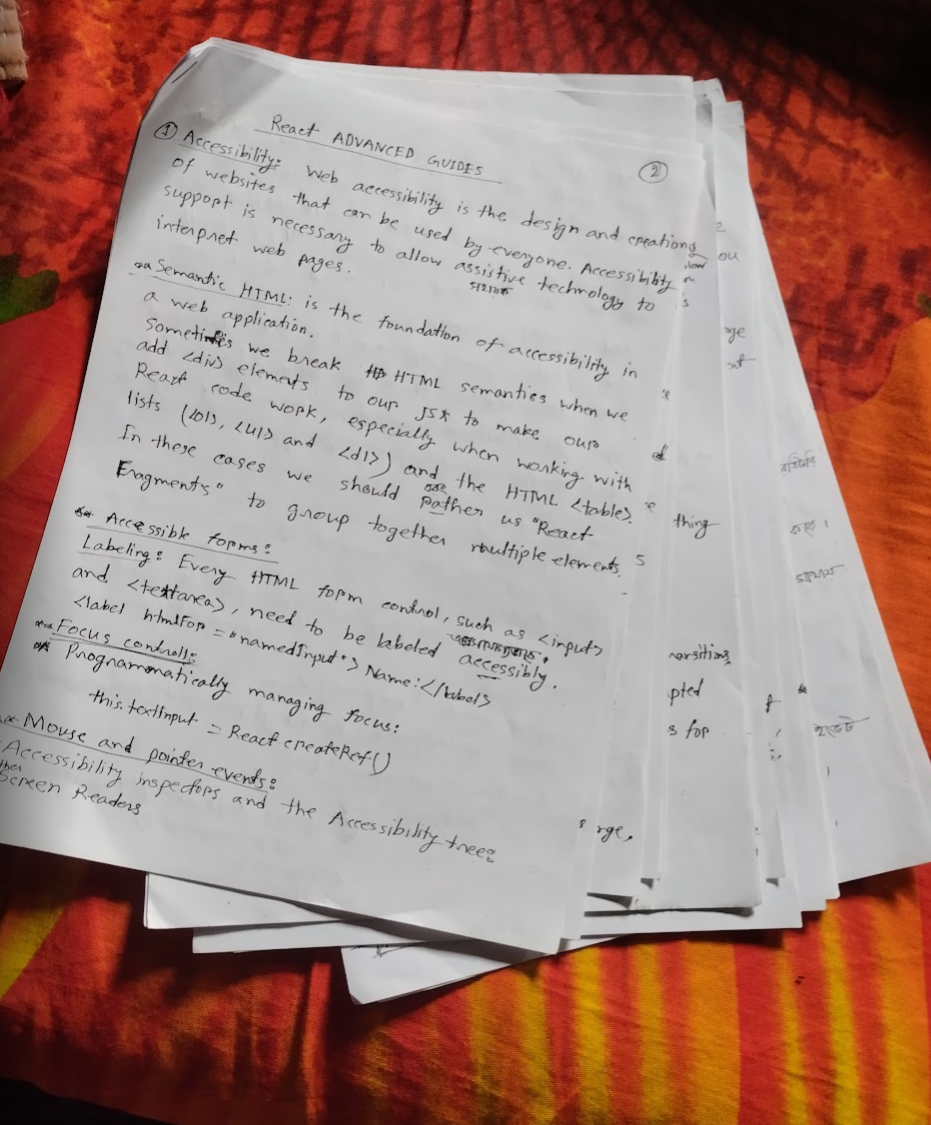 React ADVANCED GUIDES
① Accessibility: Web accessibility is the design and creationg ②
of websites that can be used by everyone. Accessibility
support is necessary to allow assistive technology to
সহায়ক
interpret web pages.
Semantic HTML: is the foundation of accessibility in
a web application.
Sometimes we break HTML semantics when we
add <div> elements to our JSX to make our
React code work, especially when working with
lists (<ol>, <ul> and <dl>) and the HTML <table>.
In these cases we should rather us "React
Fragments" to group together multiple elements.
Accessible forms:
Labeling: Every HTML form control, such as <input>
and <textarea>, need to be labeled accessibly.
<label htmlFor = "namedInput"> Name: </label>
Focus control:
Programmatically managing focus:
this.textInput = React createRef()
Mouse and pointer events:
Accessibility inspectors and the Accessibility tree:
Screen Readers
ou
rge
thing
pted
s for
rge,